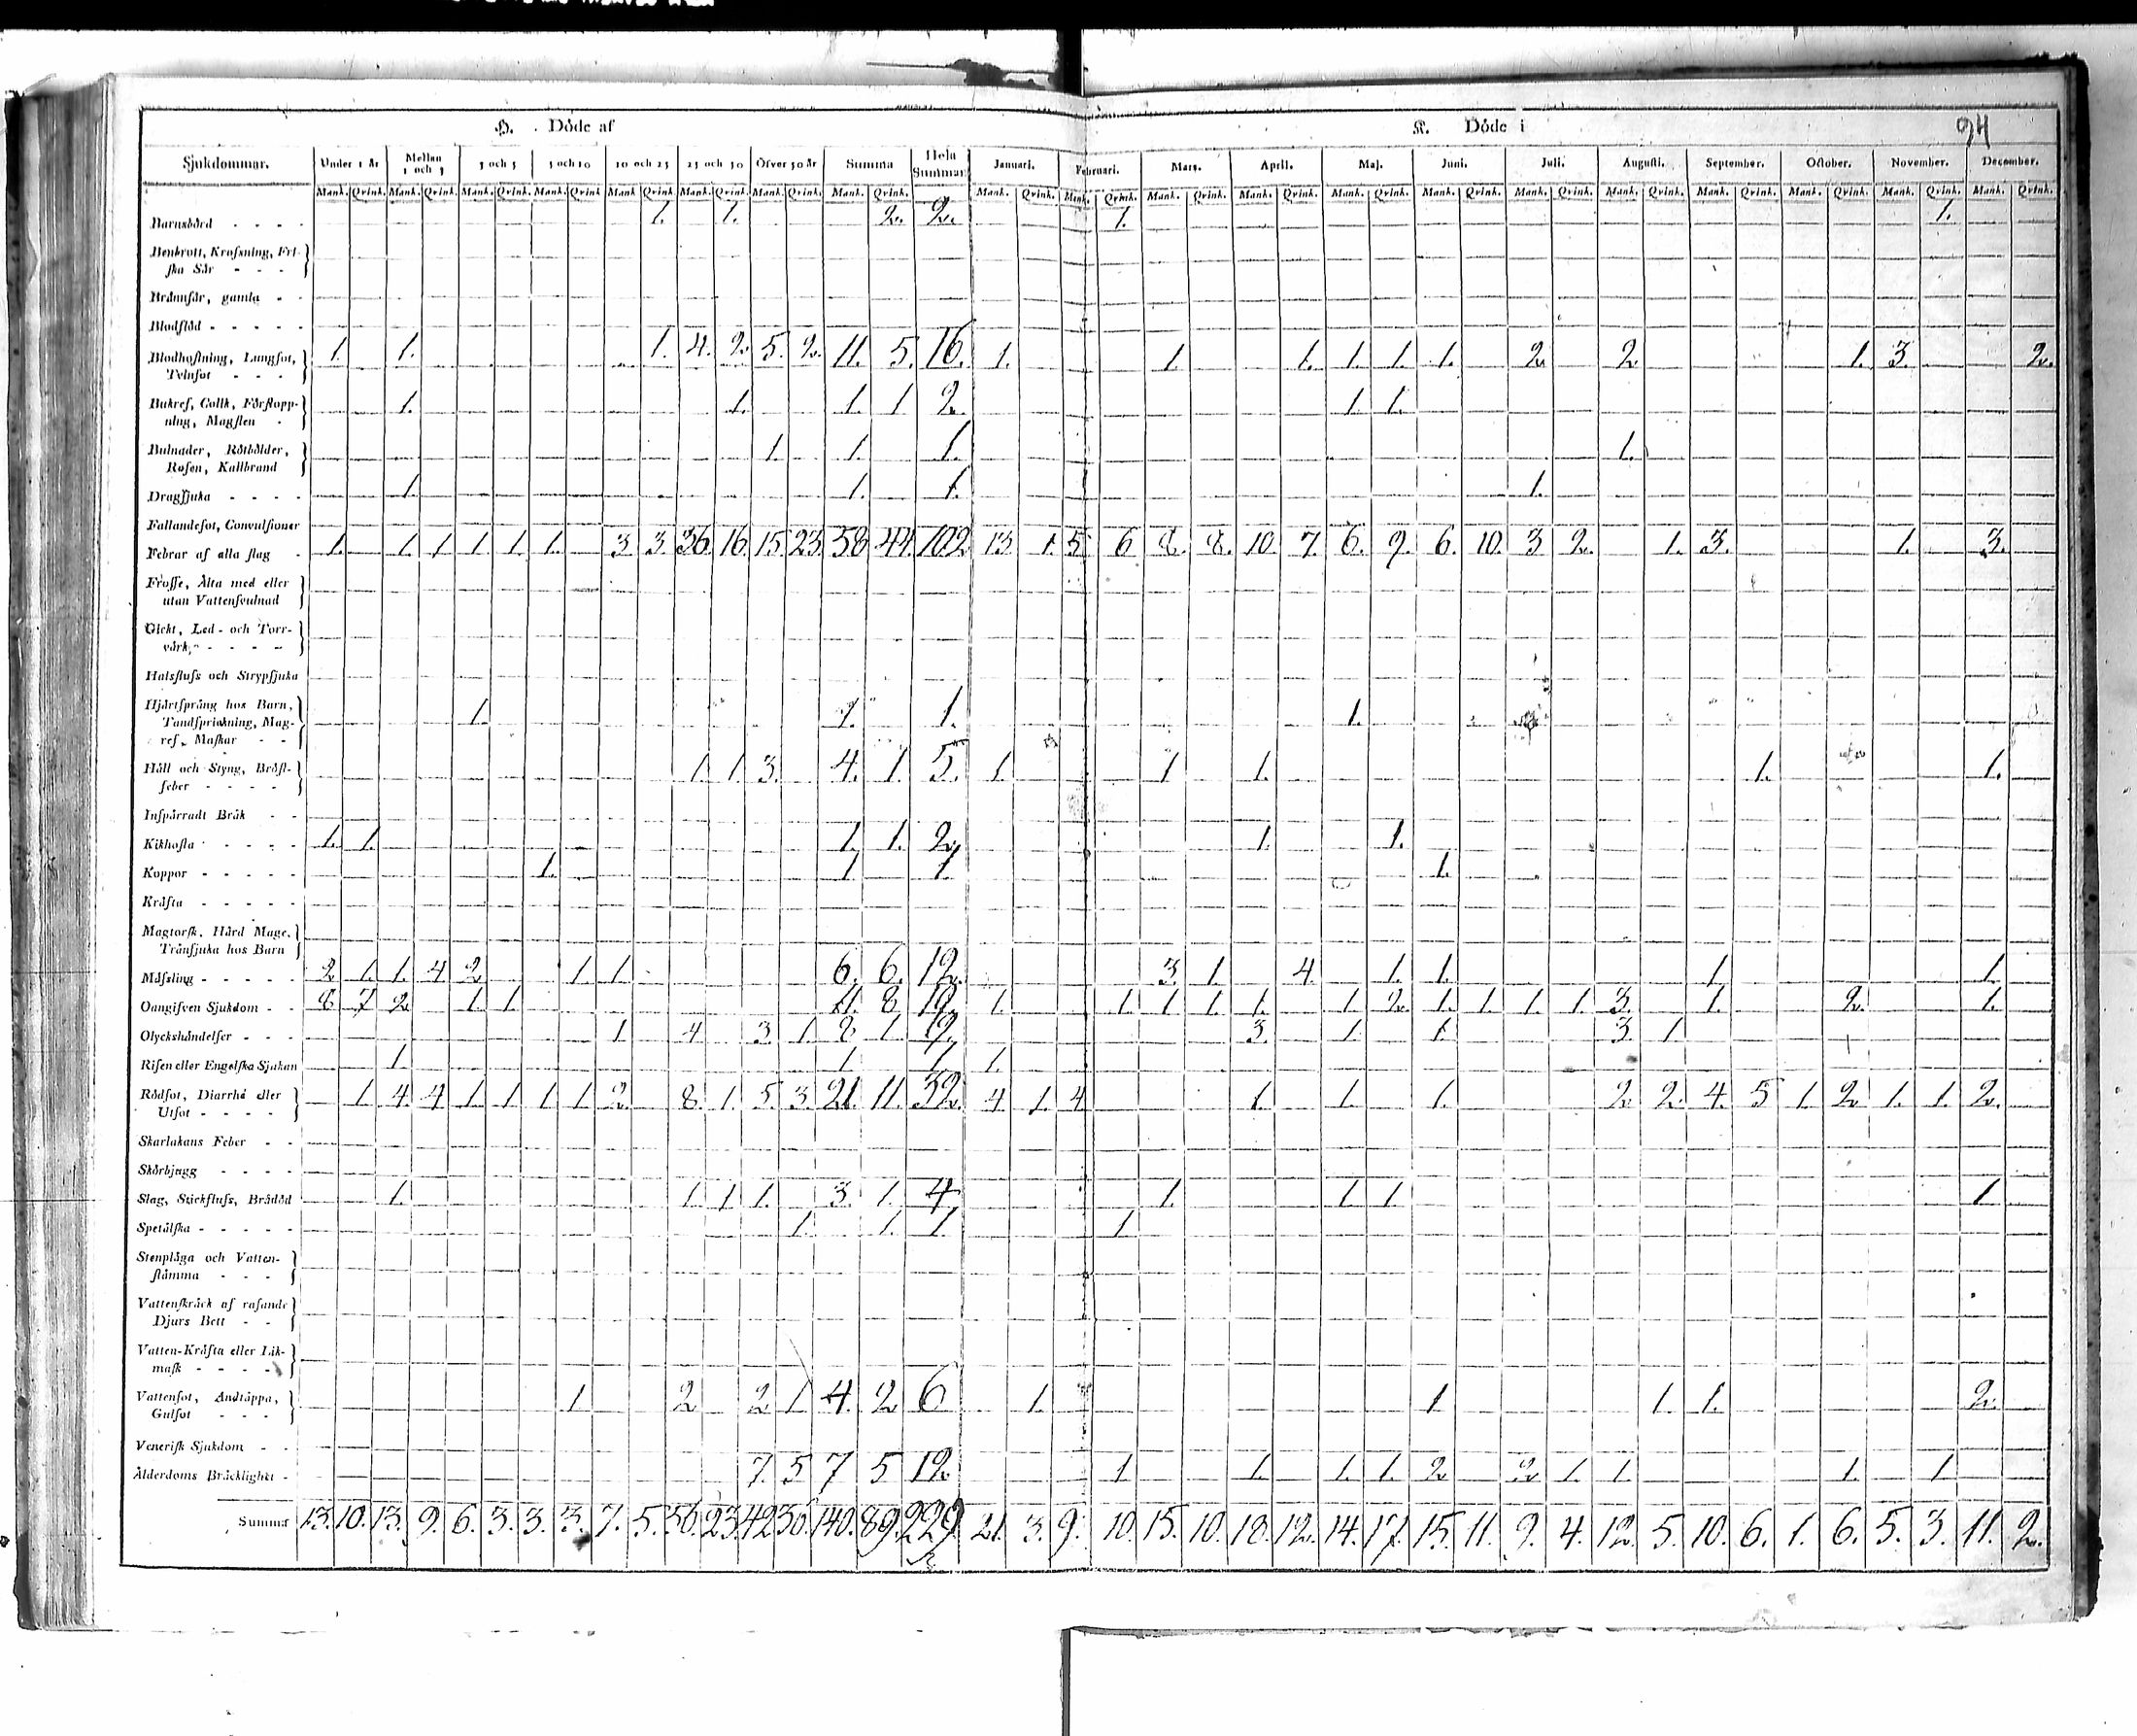 94
H. Döde af K. Döde i
Sjukdommar. Under 1 år Mellan 1 och 3 3 och 5 5 och 10 10 och 25 25 och 50 Öfver 50 år Summa Hela Summan Januari. Februari. Mars. April. Maj. Juni. Juli. Augusti. September. October. November. December.
Mank. Qvink. Mank. Qvink. Mank. Qvink. Mank. Qvink Mank Qvink Mank. Qvink. Mank. Qvink. Mank. Qvink. Mank. Qvink. Mank. Qvink. Mank. Qvink. Mank. Qvink. Mank. Qvink. Mank. Qvink. Mank. Qvink. Mank. Qvink. Mank. Qvink. Mank. Qvink. Mank. Qvink. Mank. Qvink.
Barnsbörd - - - - 1. 1. 2. 2. 1. 1.
Benbrott, Kroſsning, Fri-
ſka Sår - - -
Brännſår, gamla - -
Blodſlöd - - - - -
Blodhoſtning, Lungſot, 1. 1. 1. 4. 2. 5. 2. 11. 5. 16. 1. 1. 1. 1. 1. 1. 2 2 1. 3. 2.
Tvinſot - - -
Bukref, Collk, Förſtopp- 1. 1. 1. 1 2. 1. 1.
ning, Magſten -
Bulnader, Rötbölder, 1. 1. 1. 1.
Roſen, Kallbrand
Dragſjuka - - - - 1. 1. 1. 1.
Fallandeſot, Convulſioner
Febrar af alla ſlag - 1. 1. 1 1 1. 1. 3 3. 36. 16. 15. 23. 58 44. 102 13. 1. 5 6 8. 8. 10. 7. 6. 9. 6. 10. 3. 2. 1. 3. 1. 3.
Froſſe, Älta med eller
utan Vattenſvulnad
Gickt, Led- och Torr-
värk - - - -
Halsſluſs och Strypſjuka
Hjärtſprång hos Barn, 1. 1. 1. 1.
Tandſprickning, Mag-
ref, Maſkar - -
Håll och Styng, Bröſt- 1. 1. 3. 4. 1. 5. 1. 1 1. 1. 1.
feber - - - -
Inſpärradt Bråk - -
Kikhoſta - - - - 1. 1. 1. 1. 2. 1. 1.
Koppor - - - - - 1. 1 1 1.
Kräfta - - - - -
Magtorſk, Hård Mage,
Tränſjuka hos Barn
Mäſsling - - - - - 2 1. 1. 4 2 1. 1. 6. 6. 12. 3. 1. 4. 1. 1. 1. 1.
Oangifven Sjukdom - - 8 7 2 1. 1. 11. 8. 19. 1. 1. 1. 1. 1. 1. 2. 1. 1. 1. 1. 3. 1. 2. 1.
Olyckshändelſer - - - 1. 4. 3. 1. 8. 1. 9. 3. 1. 1. 3. 1
Riſen eller Engelſka Sjukan 1. 1. 1. 1.
Rödſot, Diarrhé eller 1. 4. 4 1. 1. 1. 1. 2. 8. 1. 5. 3. 21. 11. 32. 4 1. 4 1. 1. 1. 2. 2. 4. 5 1. 2 1. 1. 2.
Utſot - - - -
Skarlakans Feber - -
Skörbjugg - - - -
Slag, Stickſluſs, Brådöd 1. 1. 1. 1. 3. 1. 4 1. 1. 1. 1
Spetälſka - - - - - 1. 1. 1. 1
Stenplåga och Vatten-
ſtämma - - -
Vattenſkräck af raſande
Djurs Bett - -
Vatten-Kräfta eller Lik-
maſk - - - -
Vattenſot, Andtäppa, 1. 2 2 1. 4. 2 6 1. 1 1. 1. 2.
Gulſot - - -
Veneriſk Sjukdom - -
Ålderdoms Bräcklighet - 7. 5 7 5 12 1 1. 1. 1. 2 2 1. 1. 1. 1
Summa 13. 10. 13. 9. 6. 3. 3. 3. 7. 5. 56. 23. 42 36. 140. 89. 229 21. 3. 9. 10. 15. 10. 18. 12. 14. 17. 15. 11. 9. 4. 12. 5. 10. 6. 1. 6. 5. 3. 11. 2.